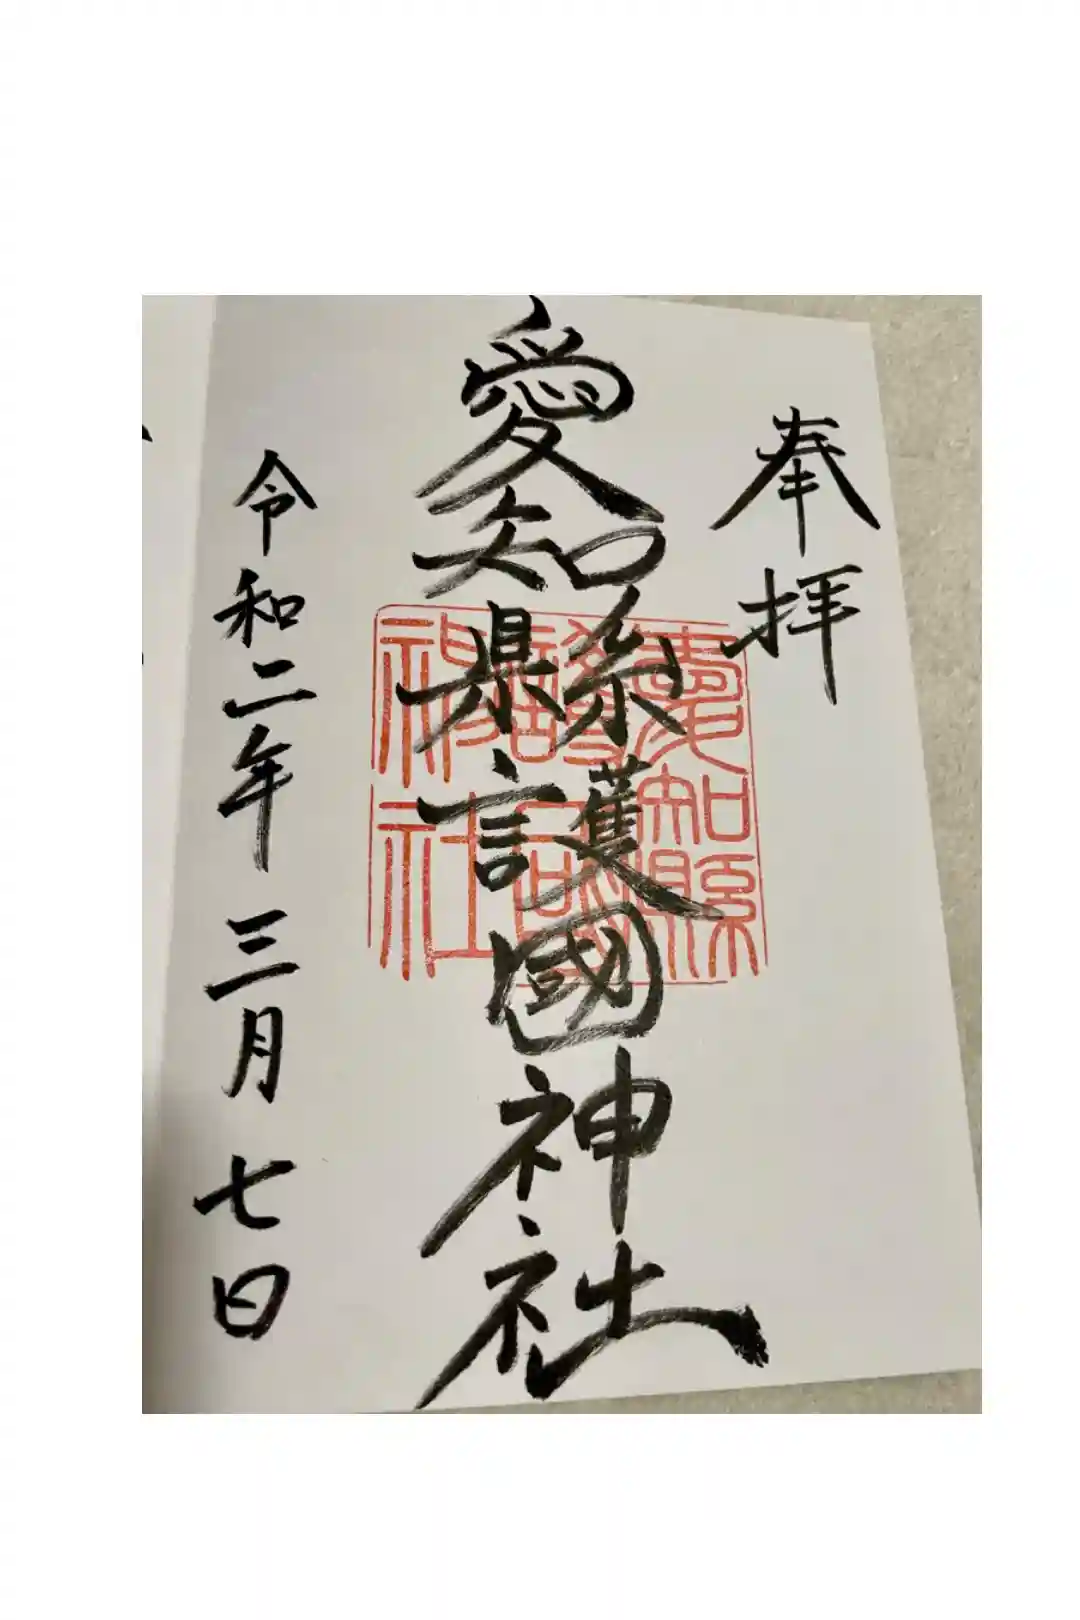 奉拝
愛知縣護國神社
愛知縣
護國
神社
令和二年三月七日